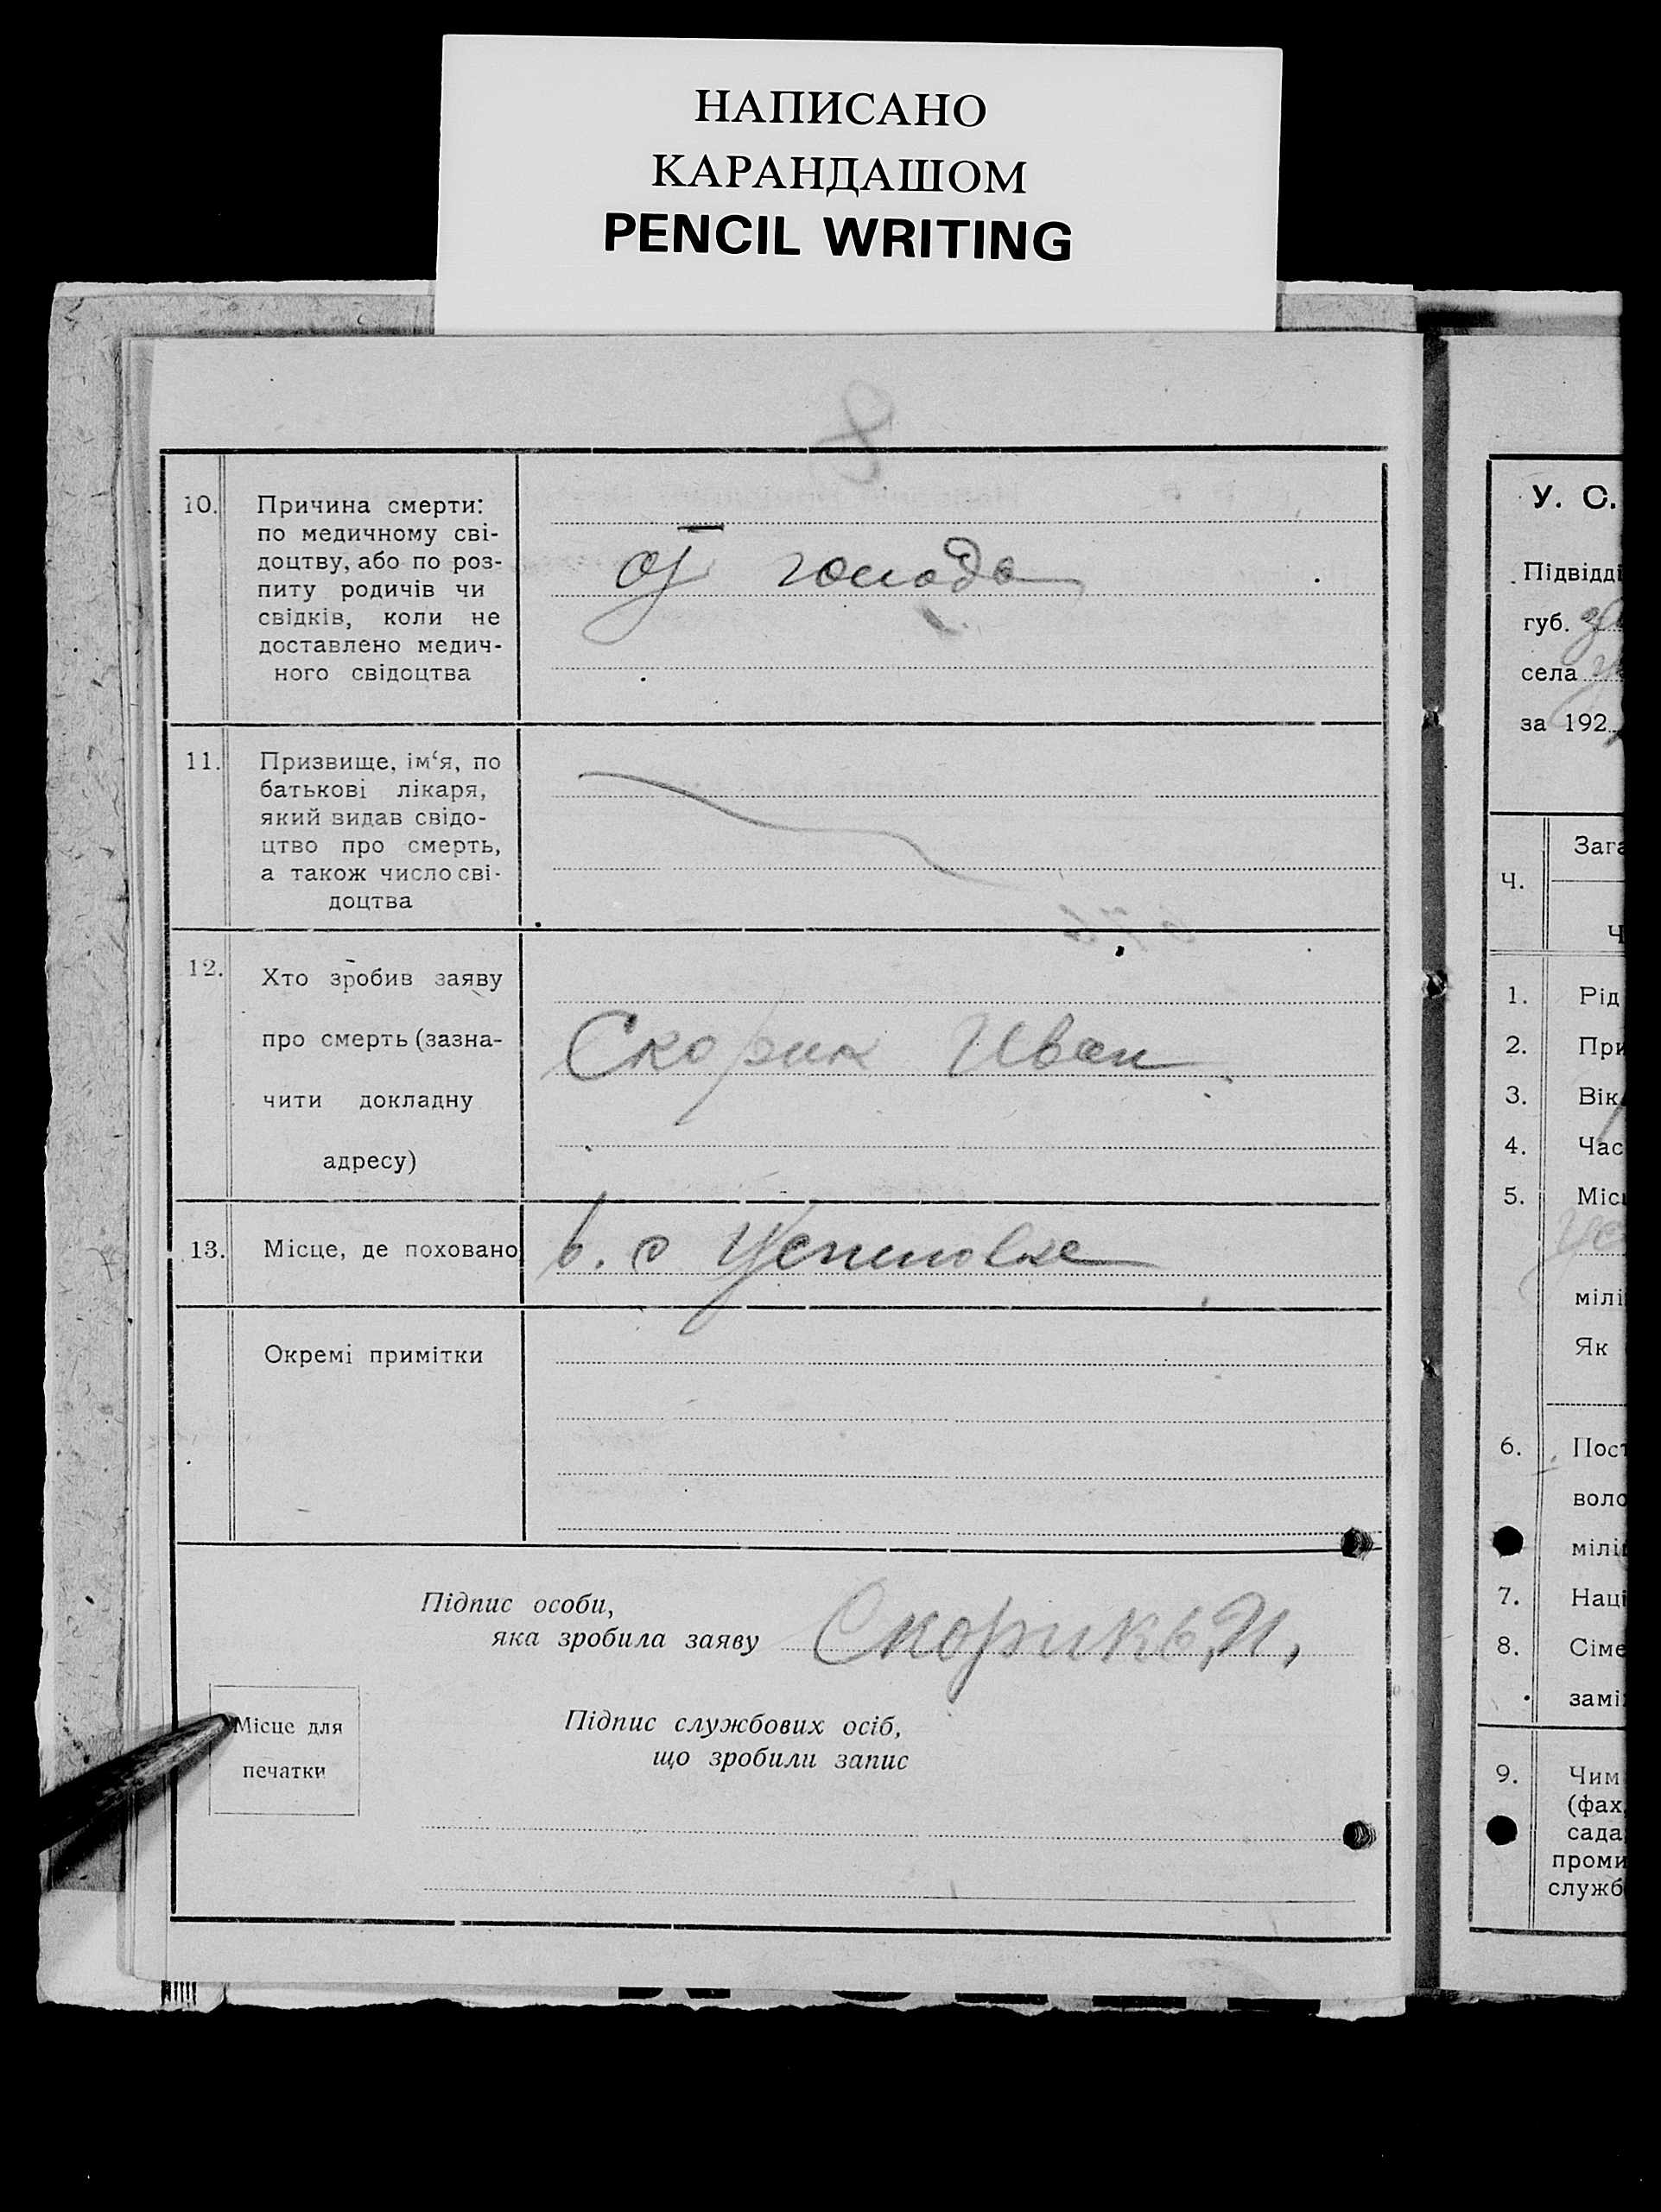 НАПИСАНО
КАРАНДАШОМ
PENCIL WRITING
8
10. Причина смерти:
по медичному сві-
доцтву, або по роз-
питу родичів чи
свідків, коли не
доставлено медич-
ного свідоцтва
от голода
11. Призвище, ім‘я, по
батькові лікаря,
який видав свідо-
цтво про смерть,
а також число сві-
доцтва
12. Хто зробив заяву
про смерть (зазна-
чити докладну
адресу)
Скорик Иван
13. Місце, де поховано
в. с
Окремі примітки
Підпис особи,
яка зробила заяву
Скорикъ, И,
Місце для
печатки
Підпис службових осіб,
що зробили запис
У. С.
Підвідді
губ.
села
за 192
Зага
Ч.
Ч
1. Рід
2. При
3. Вік
4. Час
5. Місц
мілі
Як
6. Пост
воло
міліц
7. Наці
8. Сіме
замі
9. Чим
(фах,
сада
проми
служб